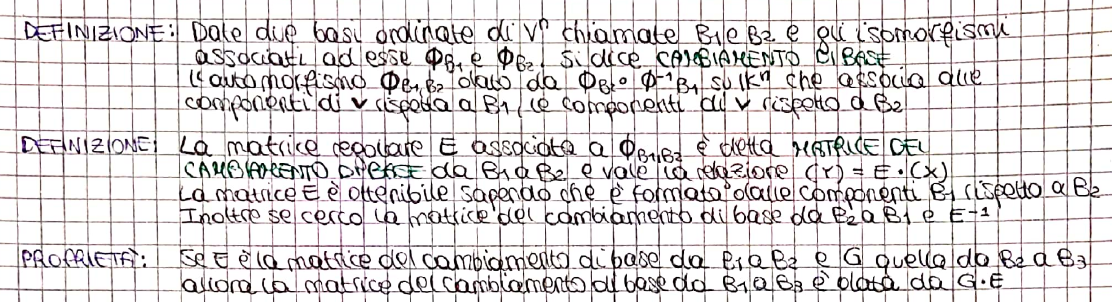 DEFINIZIONE: Date due basi ordinate di Vⁿ chiamate B1 e B2 e gli isomorfismi
associati ad esse ΦB1 e ΦB2, si dice CAMBIAMENTO DI BASE
l'automorfismo ΦB1,B2 dato da ΦB2∘Φ⁻¹B1 su Kⁿ che associa alle
componenti di v rispetto a B1, le componenti di v rispetto a B2
DEFINIZIONE: La matrice regolare E associata a ΦB1,B2 è detta MATRICE DEL
CAMBIAMENTO DI BASE da B1 a B2 e vale la relazione (Y) = E·(X)
La matrice E è ottenibile sapendo che è formata dalle componenti B1 rispetto a B2
Inoltre se cerco la matrice del cambiamento di base da B2 a B1 è E⁻¹
PROPRIETÀ: Se E è la matrice del cambiamento di base da B1 a B2 e G quella da B2 a B3
allora la matrice del cambiamento di base da B1 a B3 è data da G·E